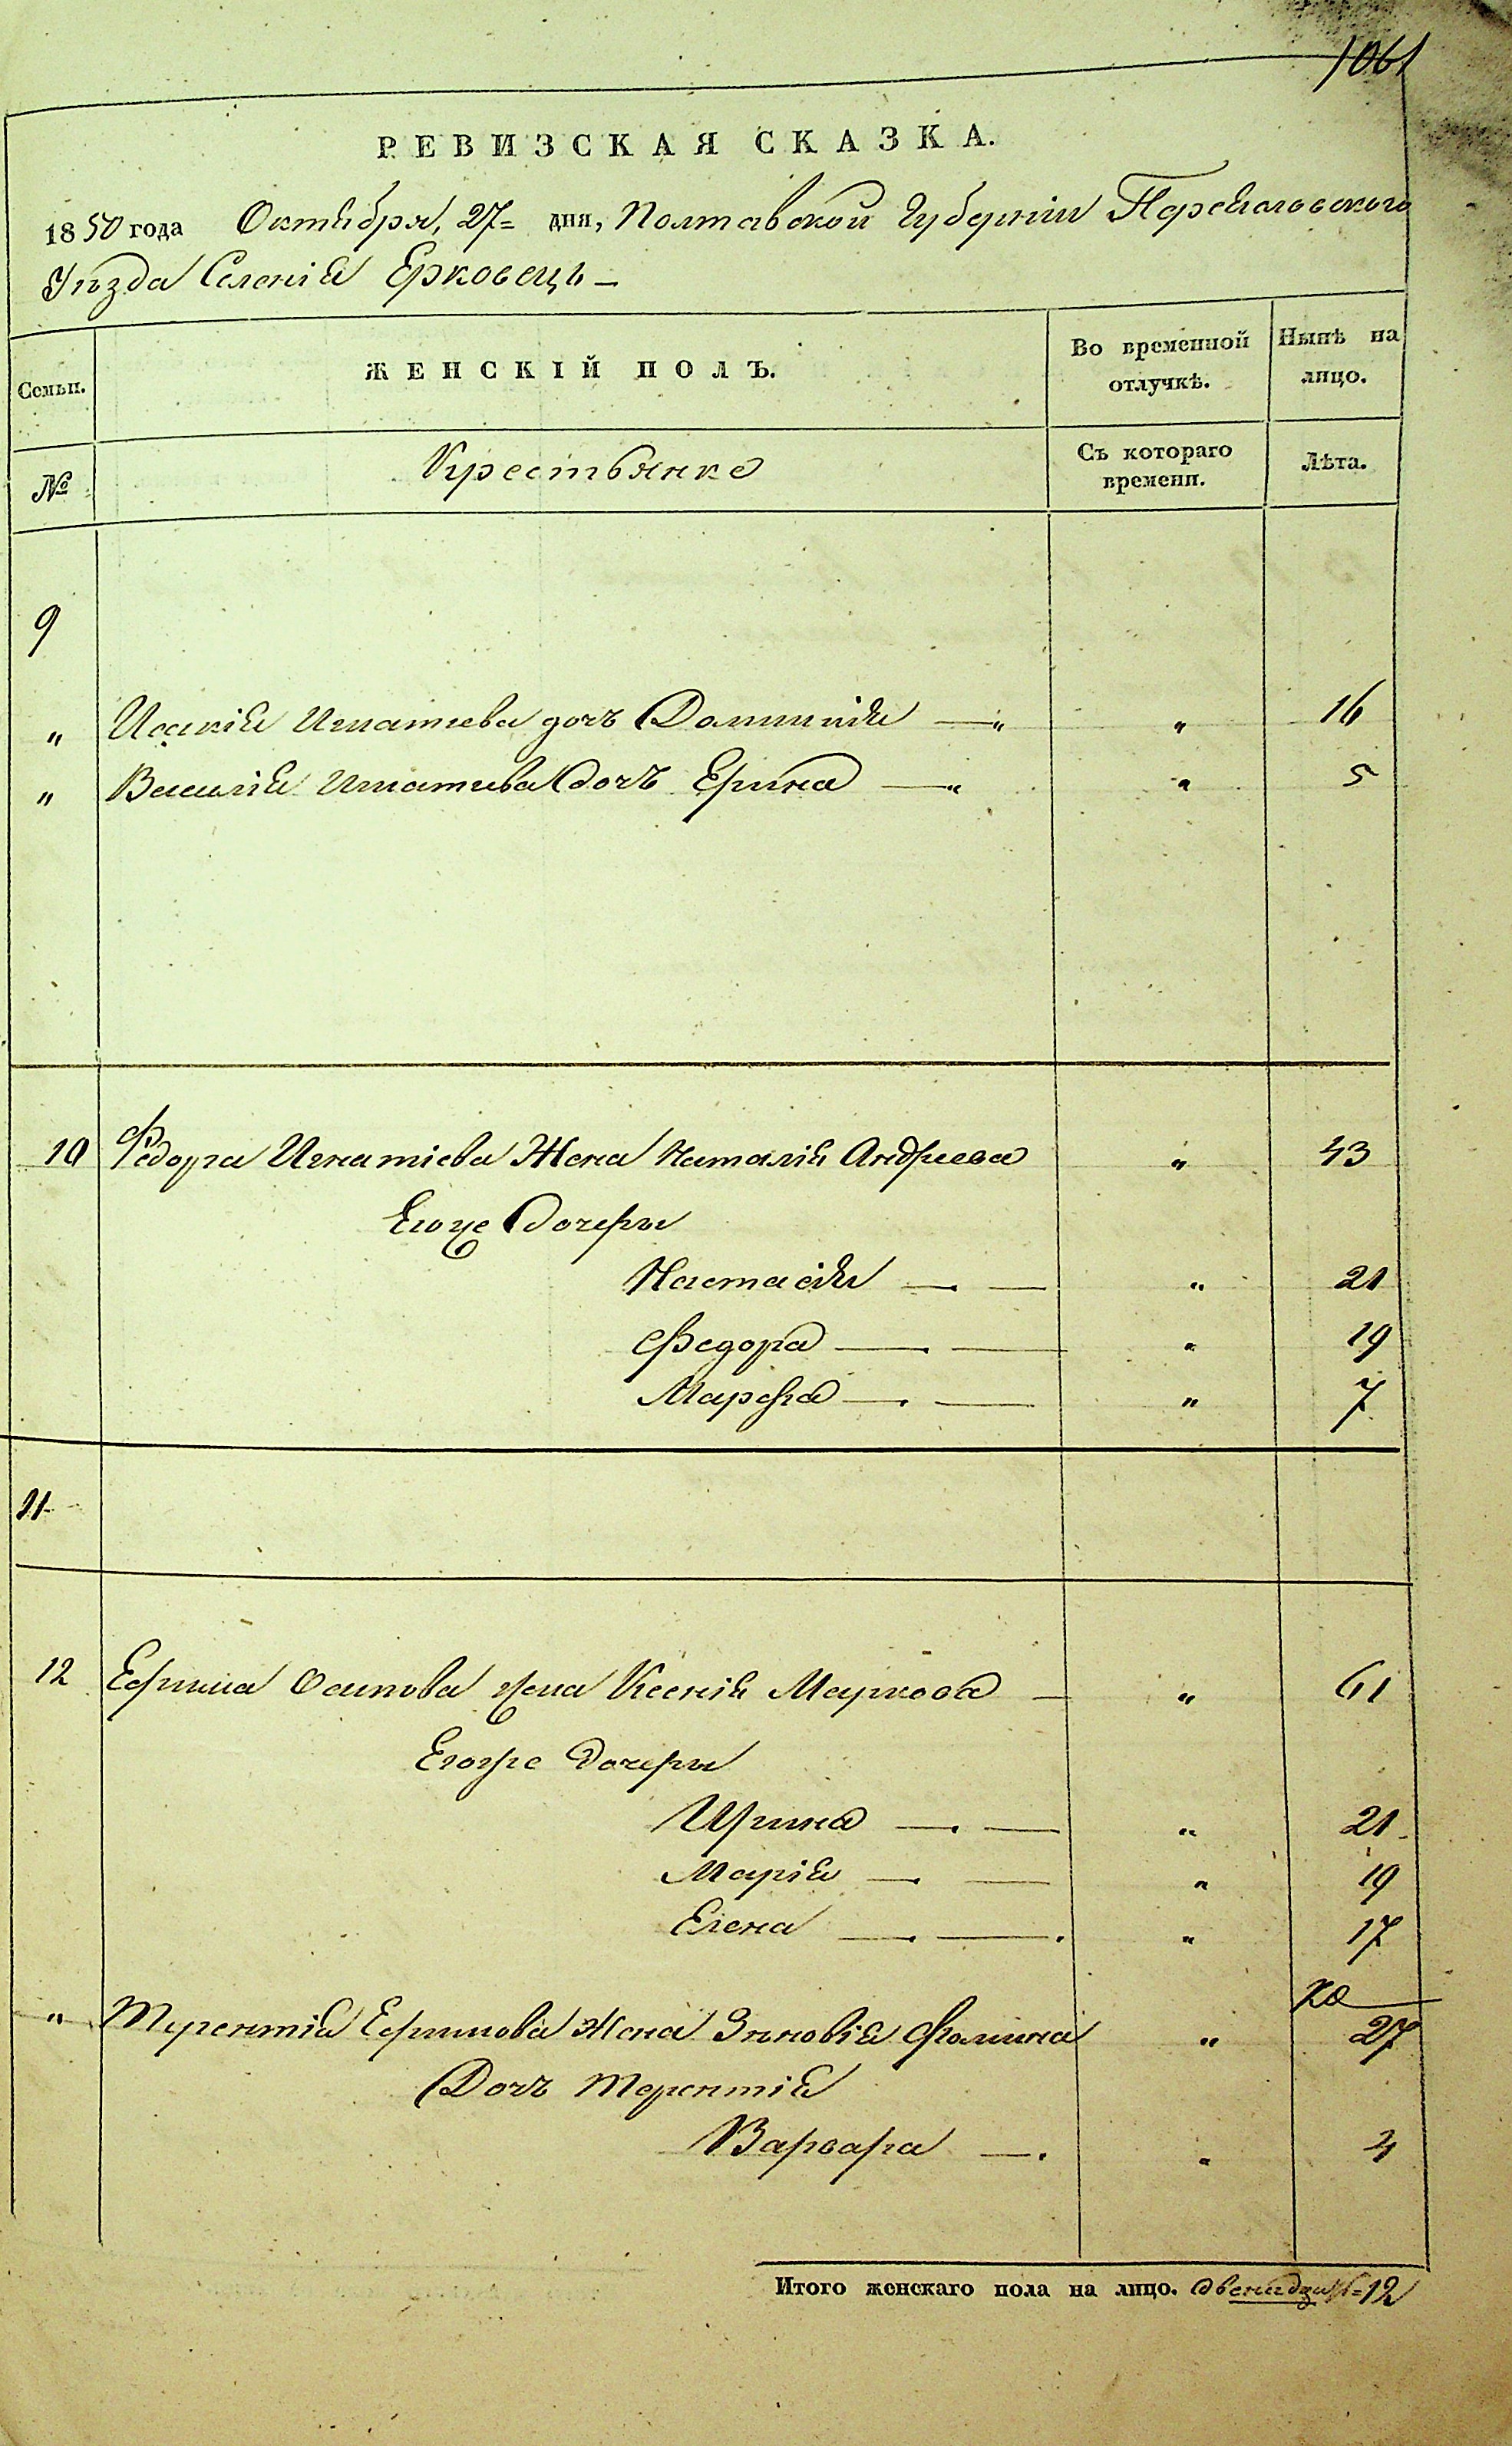 1061
РЕВИЗСКАЯ СКАЗКА.
1850 года Октября, 27= дня, Полтавской Губерніи Переясловского
Уѣзда Селенія Ерковець –
Семьи. ЖЕНСКІЙ ПОЛЪ. Во временной отлучкѣ. Нынѣ на лицо.
№ Крестьянке Съ котораго времени. Лѣта.
9
" Исакія Игнатиева дочь Домникія — " " 16
" Василія Игнатиева дочь Ерина — " " 5
10 Федора Игнатіева Жена Наталія Андреева " 43
Егоже Дочеры
Настасія — — " 21
Федора — — " 19
Марфа — — " 7
11
12 Ефима Осипова жена Ксенія Маркова — " 61
Егоже Дочеры
Ирина — — " 21
Марія — — " 19
Елена — — " 17
" Терентія Ефимова Жена Зѣновія Фомина " 27
Дочь Терентія
Варвара — " 4
Итого женскаго пола на лицо. двенадцать=12